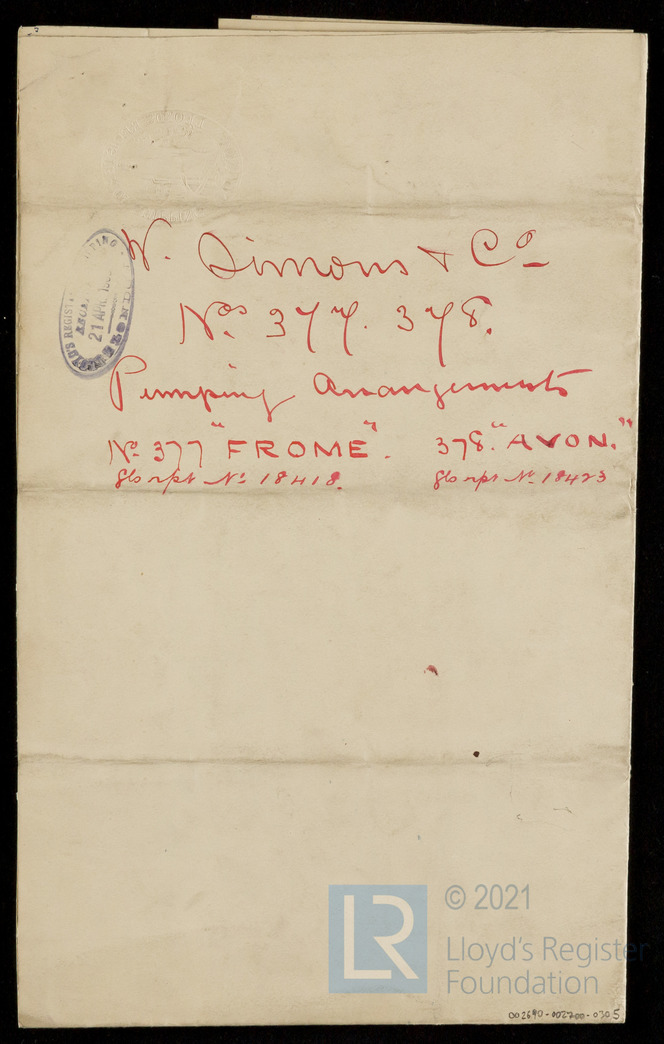 W. Simons & Co
Nos. 377. 378.
Pumping Arrangements
No 377 "FROME". 378. "AVON."
Gls rpt No 18418. Gls rpt No 18423
LLOYD'S REGISTER SHIPPING
21 APR
LONDON
LR
© 2021
Lloyd's Register
Foundation
002690-002700-0305